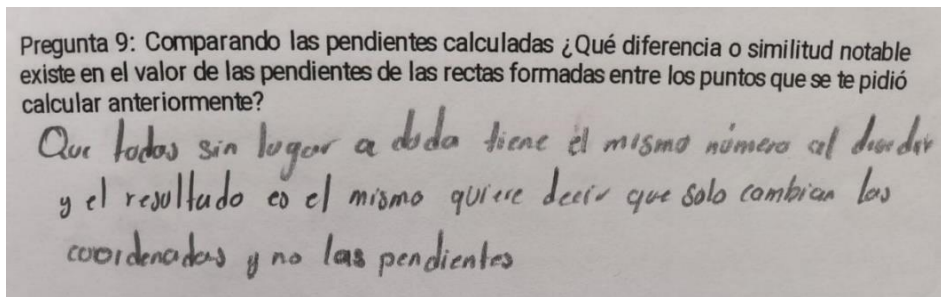 Pregunta 9: Comparando las pendientes calculadas ¿Qué diferencia o similitud notable
existe en el valor de las pendientes de las rectas formadas entre los puntos que se te pidió
calcular anteriormente?
Que todas sin lugar a duda tiene el mismo número al dividir
y el resultado es el mismo quiere decir que solo cambian las
coordenadas y no las pendientes